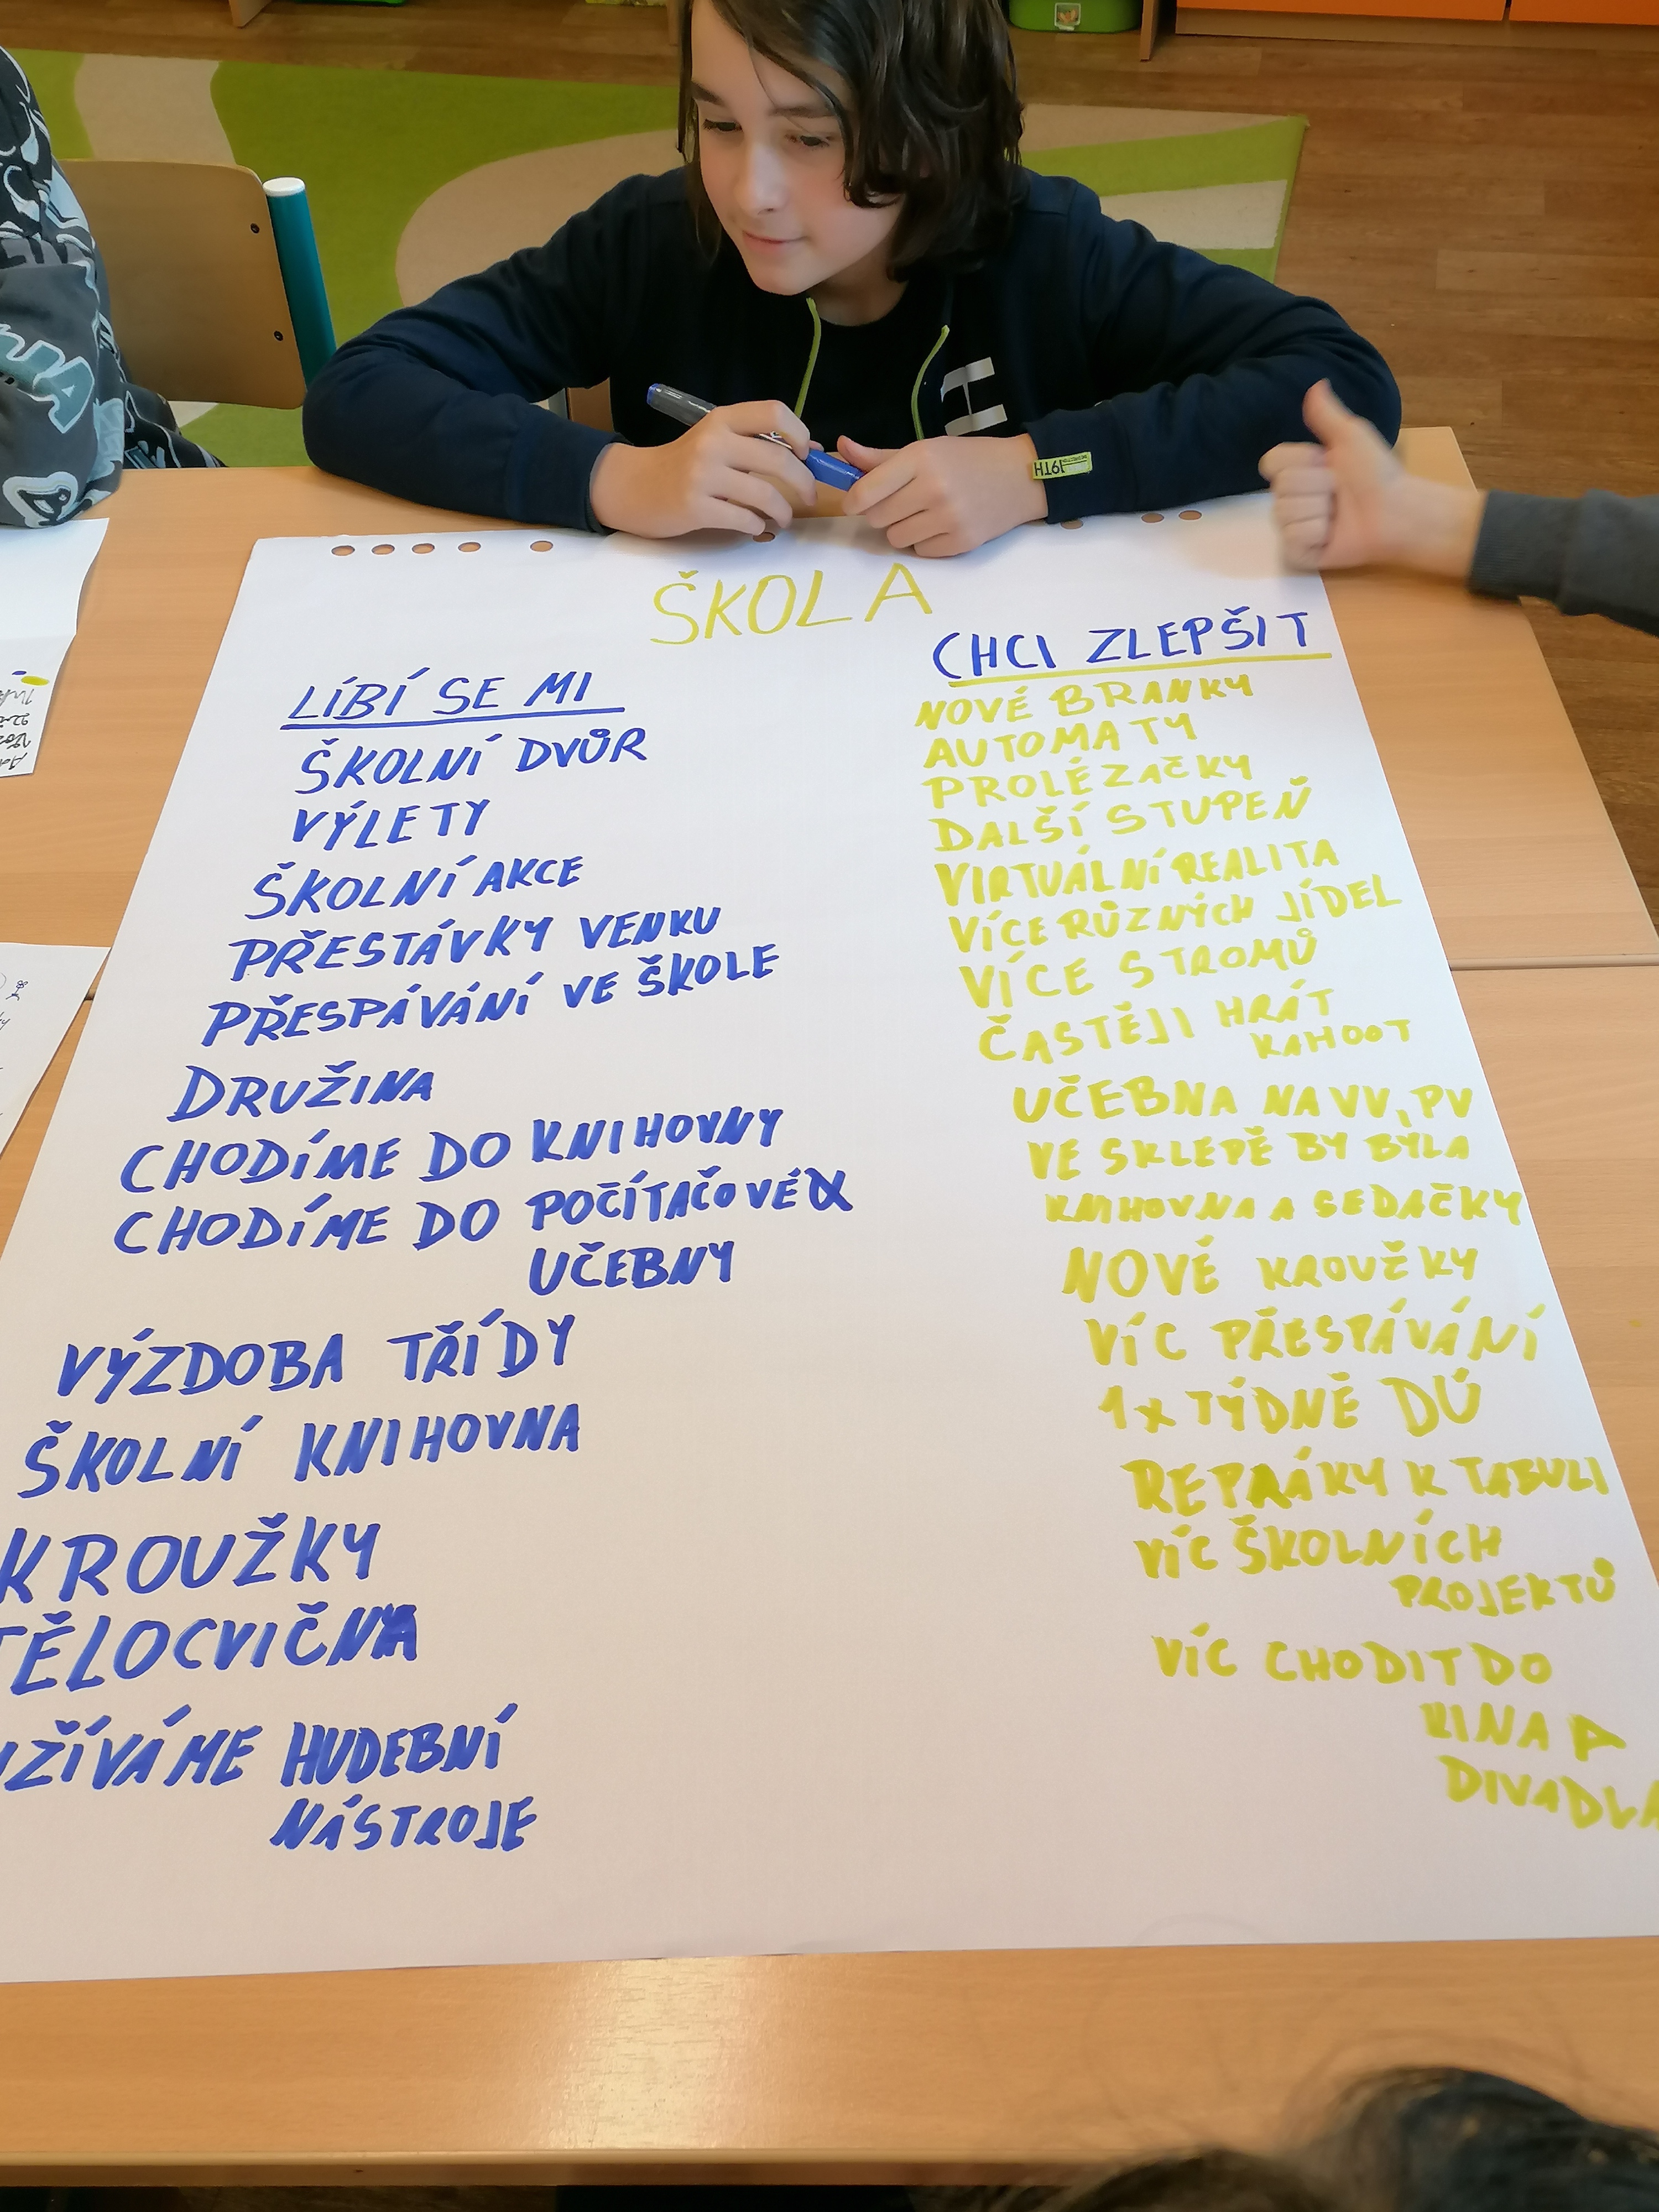 ŠKOLA
LÍBÍ SE MI
ŠKOLNÍ DVŮR
VÝLETY
ŠKOLNÍ AKCE
PŘESTÁVKY VENKU
PŘESPÁVÁNÍ VE ŠKOLE
DRUŽINA
CHODÍME DO KNIHOVNY
CHODÍME DO POČÍTAČOVÉ
UČEBNY
VÝZDOBA TŘÍDY
ŠKOLNÍ KNIHOVNA
KROUŽKY
TĚLOCVIČNA
UŽÍVÁME HUDEBNÍ
NÁSTROJE
CHCI ZLEPŠIT
NOVÉ BRANKY
AUTOMATY
PROLÉZAČKY
DALŠÍ STUPEŇ
VIRTUÁLNÍ REALITA
VÍCE RŮZNÝCH JÍDEL
VÍCE STROMŮ
ČASTĚJI HRÁT
KAHOOT
UČEBNA NA VV, PV
VE SKLEPĚ BY BYLA
KNIHOVNA A SEDAČKY
NOVÉ KROUŽKY
VÍC PŘESPÁVÁNÍ
1x TÝDNĚ DÚ
REPRÁKY K TABULI
VÍC ŠKOLNÍCH
PROJEKTŮ
VÍC CHODIT DO
KINA A
DIVADLA
H
H19TH